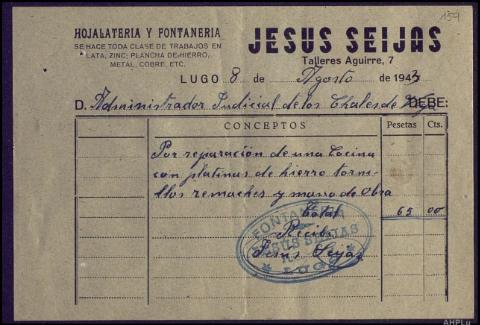 154
HOJALATERIA Y FONTANERIA
SE HACE TODA CLASE DE TRABAJOS EN
LATA, ZINC; PLANCHA DE HIERRO,
METAL, COBRE, ETC.
JESUS SEIJAS
Talleres Aguirre, 7
LUGO 8 de Agosto de 1943
D. Administrador Judicial de los Chales de DEBE:
CONCEPTOS Pesetas Cts.
Por reparación de una Cocina
con platinas de hierro torni-
llos remaches y mano de Obra
Total 65 00
Recibi
Jesus Seijas
FONTANERIA
JESUS SEIJAS
LUGO
AHPLu